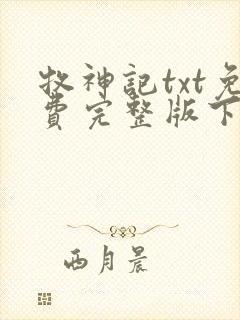 牧神記txt免
費完整版下
西月晨